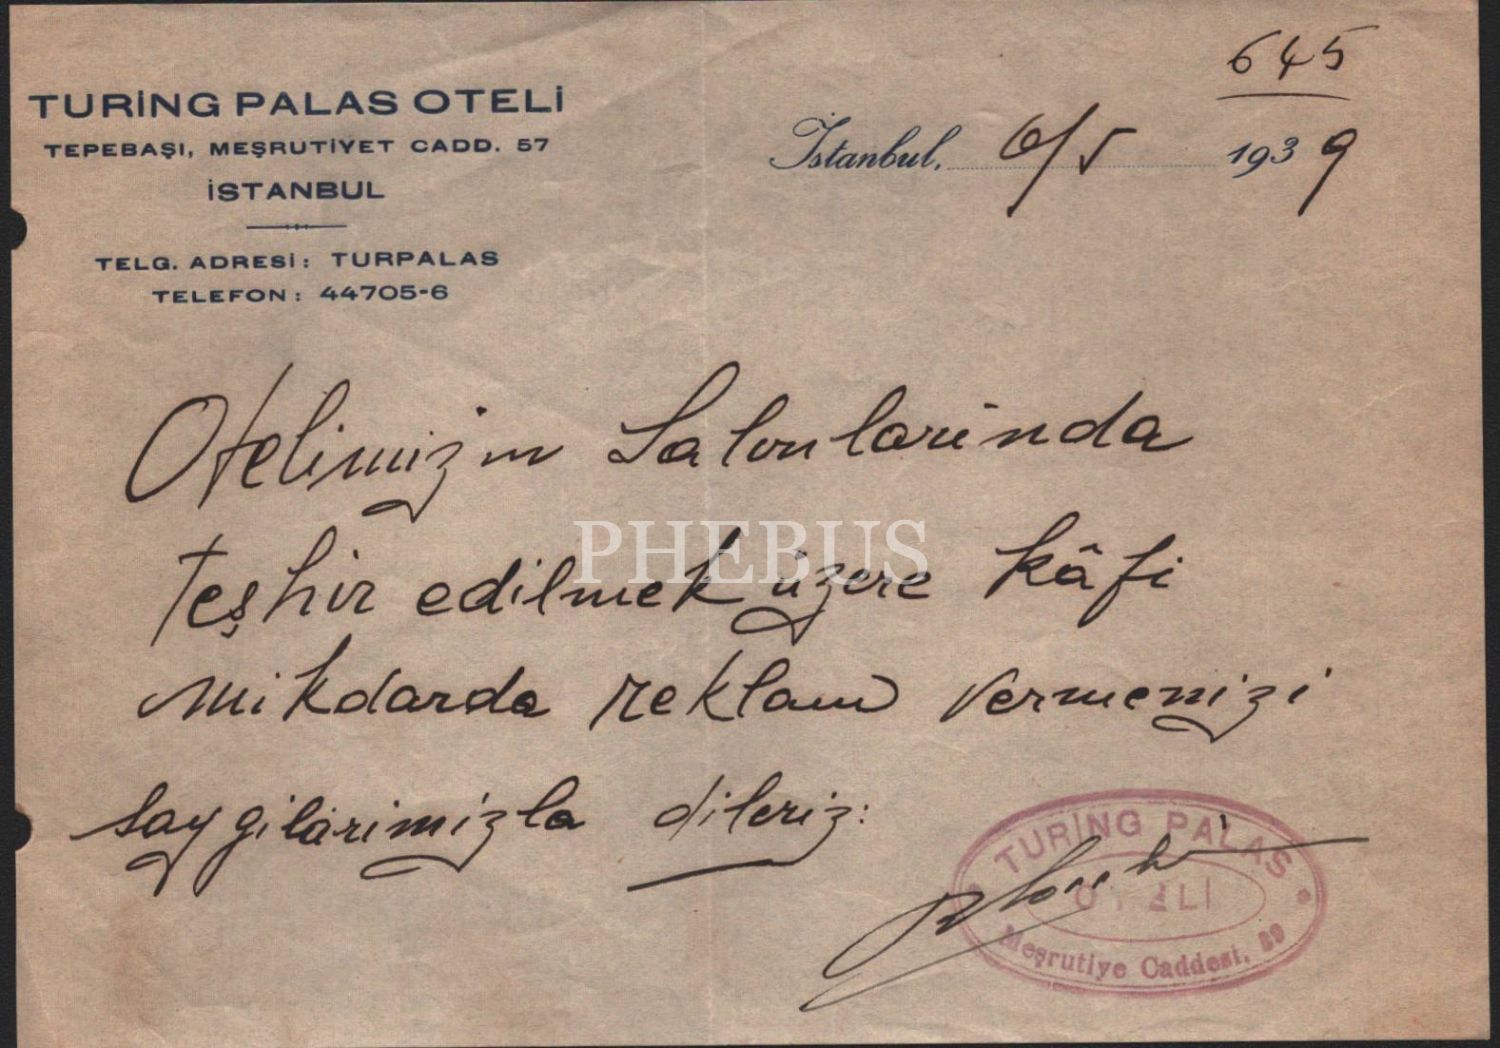 645
TURİNG PALAS OTELİ
TEPEBAŞI, MEŞRUTİYET CADD. 57
İSTANBUL
TELG. ADRESİ: TURPALAS
TELEFON: 44705-6
İstanbul, 6/5 1939
Otelimizin Salonlarinda
teşhir edilmek üzere kâfi
mikdarda reklam vermenizi
saygilarimizla dileriz:
PHEBUS
TURİNG PALAS
OTELİ
Meşrutiye Caddesi, 59